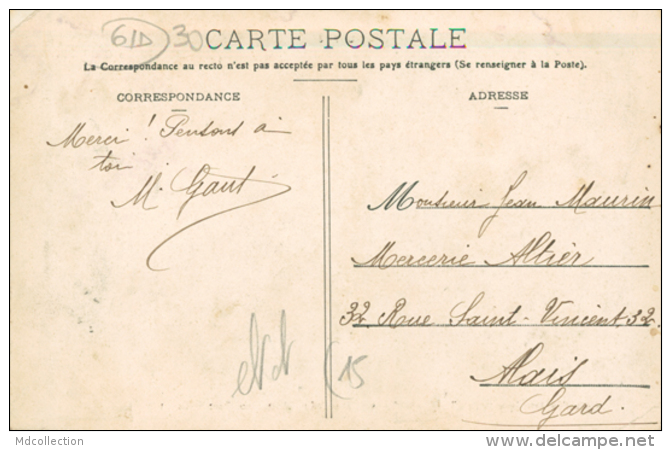 61D 30
CARTE POSTALE
La Correspondance au recto n'est pas acceptée par tous les pays étrangers (Se renseigner à la Poste).
CORRESPONDANCE
Merci ! Pensons à
toi
M. Gaut
ADRESSE
Monsieur Jean Maurin
Mercerie Altier
32 Rue Saint-Vincent 32
Alais
Gard.
15
Mdcollection
www.delcampe.net